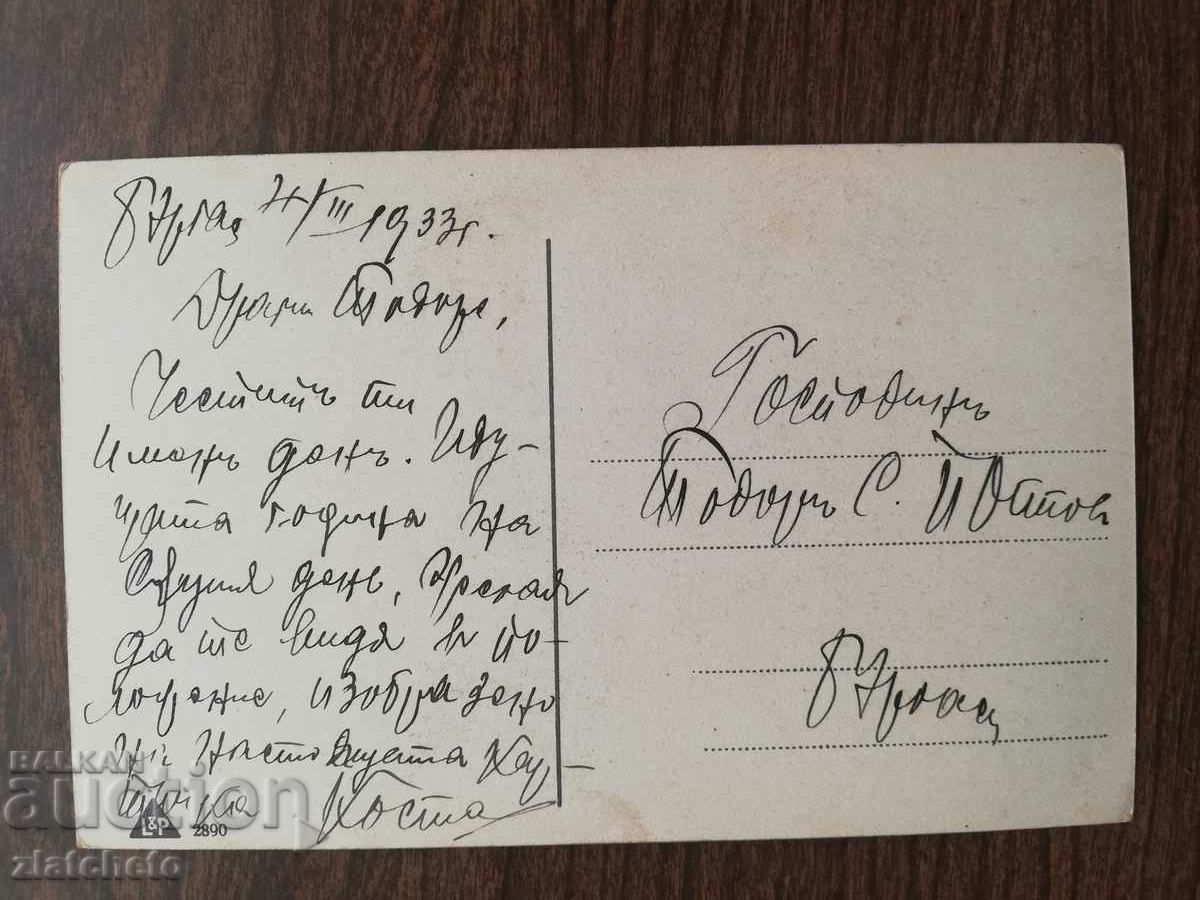 Бургас, III 1933г.
Драги Тодоре,
Честитъ ти
именъ день. Иду-
щата година на
същия день, желая
да те видя в по-
ложение, изобразено
на настоящата кар-
тичка Коста
Господинъ
Тодоръ С. Йотов
Бургас
BALKAN
auction
zlatcheto
L&P
2890